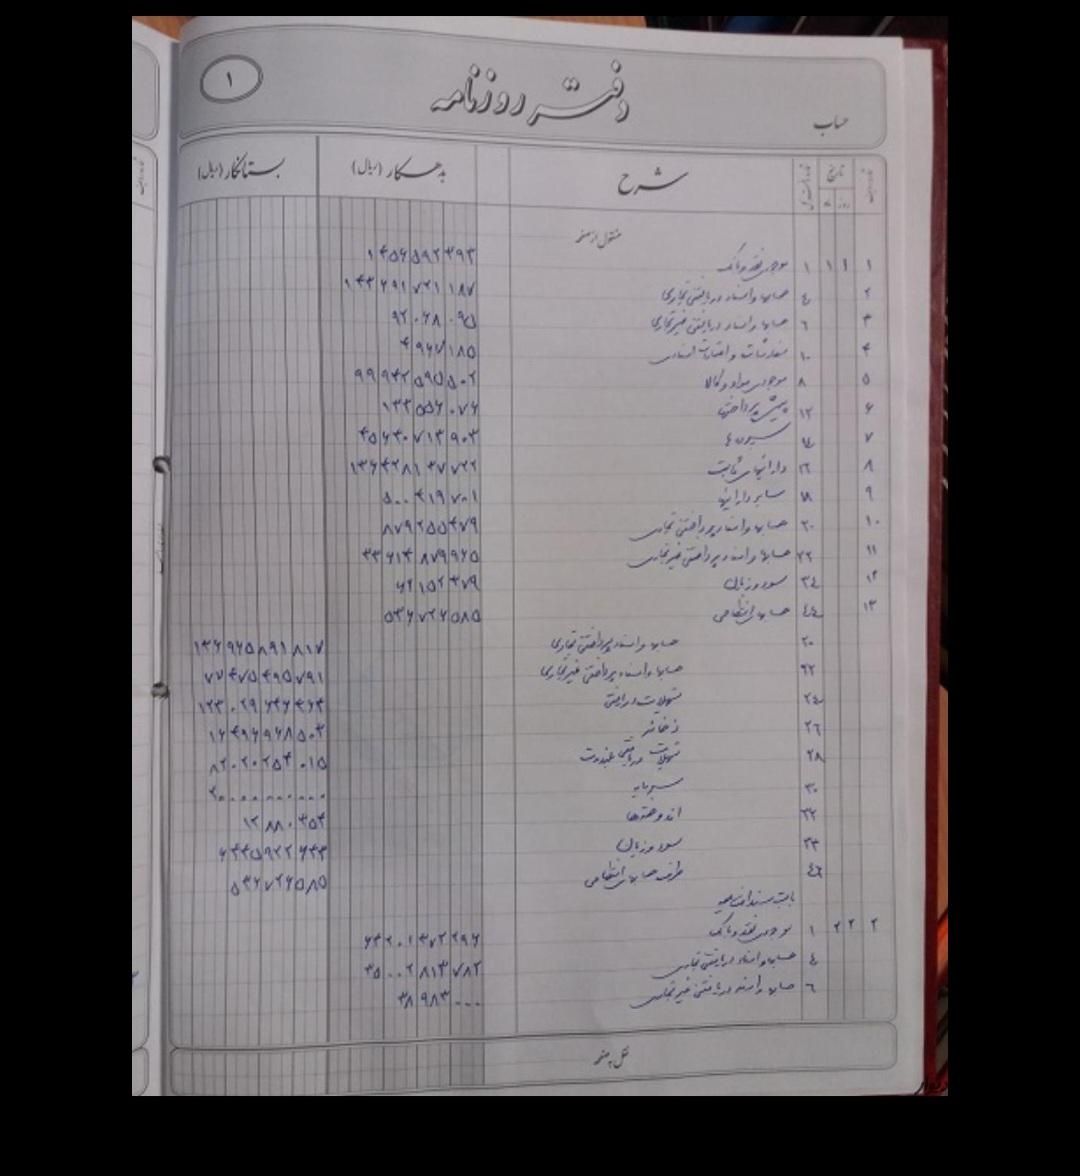 ۱
دفتر روزنامه
حساب
تاریخ روز ماه شرح بدهکار (ریال) بستانکار (ریال)
منقول از صفحه
۱ ۱ ۱ ۱ موجودی نقد و بانک ۱۴۵۶۵۹۲۳۹۳
۲ ٤ حسابها و اسناد دریافتنی تجاری ۱۴۳۶۹۱۷۲۱۱۸۷
۳ ٦ حسابها و اسناد دریافتنی غیرتجاری ۹۲۰۶۸۰۹۵
۴ ۱۰ سفارشات و اعتبارات اسنادی ۴۹۶۷۱۸۵
۵ ۸ موجودی مواد و کالا ۹۹۹۴۲۵۹۵۵۰۲
۶ ۱۲ پیش پرداختها ۱۳۳۵۵۶۰۷۶
۷ ۱٤ ۴۵۶۳۰۷۱۳۹۰۳
۸ ۱٦ دارائیهای ثابت ۱۳۶۴۲۸۱۴۷۷۲۲
۹ ۱۸ سایر دارائیها ۵۰۰۴۱۹۷۰۱
۱۰ ۲۰ حسابها و اسناد پرداختنی تجاری ۸۷۹۲۵۵۴۷۹
۱۱ ۲۲ حسابها و اسناد پرداختنی غیرتجاری ۳۳۶۱۴۸۷۹۹۶۵
۱۲ ۳٤ سود و زیان ۶۲۱۵۲۴۷۹
۱۳ ٤٤ حسابهای انتظامی ۵۳۶۷۲۶۵۸۵
۲۰ حسابها و اسناد پرداختنی تجاری ۱۳۶۹۶۵۸۹۱۸۱۷
۲۲ حسابها و اسناد پرداختنی غیرتجاری ۷۷۴۷۵۴۹۵۷۹۱
۲٤ تسهیلات دریافتی ۱۲۳۰۲۹۶۴۶۴۶۴
۲٦ ذخائر ۱۶۴۹۶۹۶۸۵۰۳
۲۸ تسهیلات دریافتی بلندمدت ۸۲۰۲۰۲۵۴۰۱۵
۳۰ سرمایه ۲۰۰۰۰۰۰۰۰۰۰
۳۲ اندوخته‌ها ۱۲۸۸۰۳۵۴
۳۴ سود و زیان ۶۴۴۵۹۲۲۶۴۳
٤٦ طرف حسابهای انتظامی ۵۳۶۷۲۶۵۸۵
بابت سند افتتاحیه
۲ ۲ ۲ ۱ موجودی نقد و بانک ۶۴۲۰۱۴۷۲۲۹۶
٤ حسابها و اسناد دریافتنی تجاری ۳۵۰۰۲۸۱۳۷۸۲
٦ حسابها و اسناد دریافتنی غیرتجاری ۳۸۹۸۳۰۰۰
نقل به صفحه
دیوار